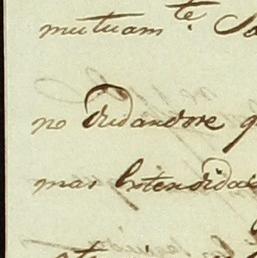 mutuam.te So
no dudandose q
mas Extendida